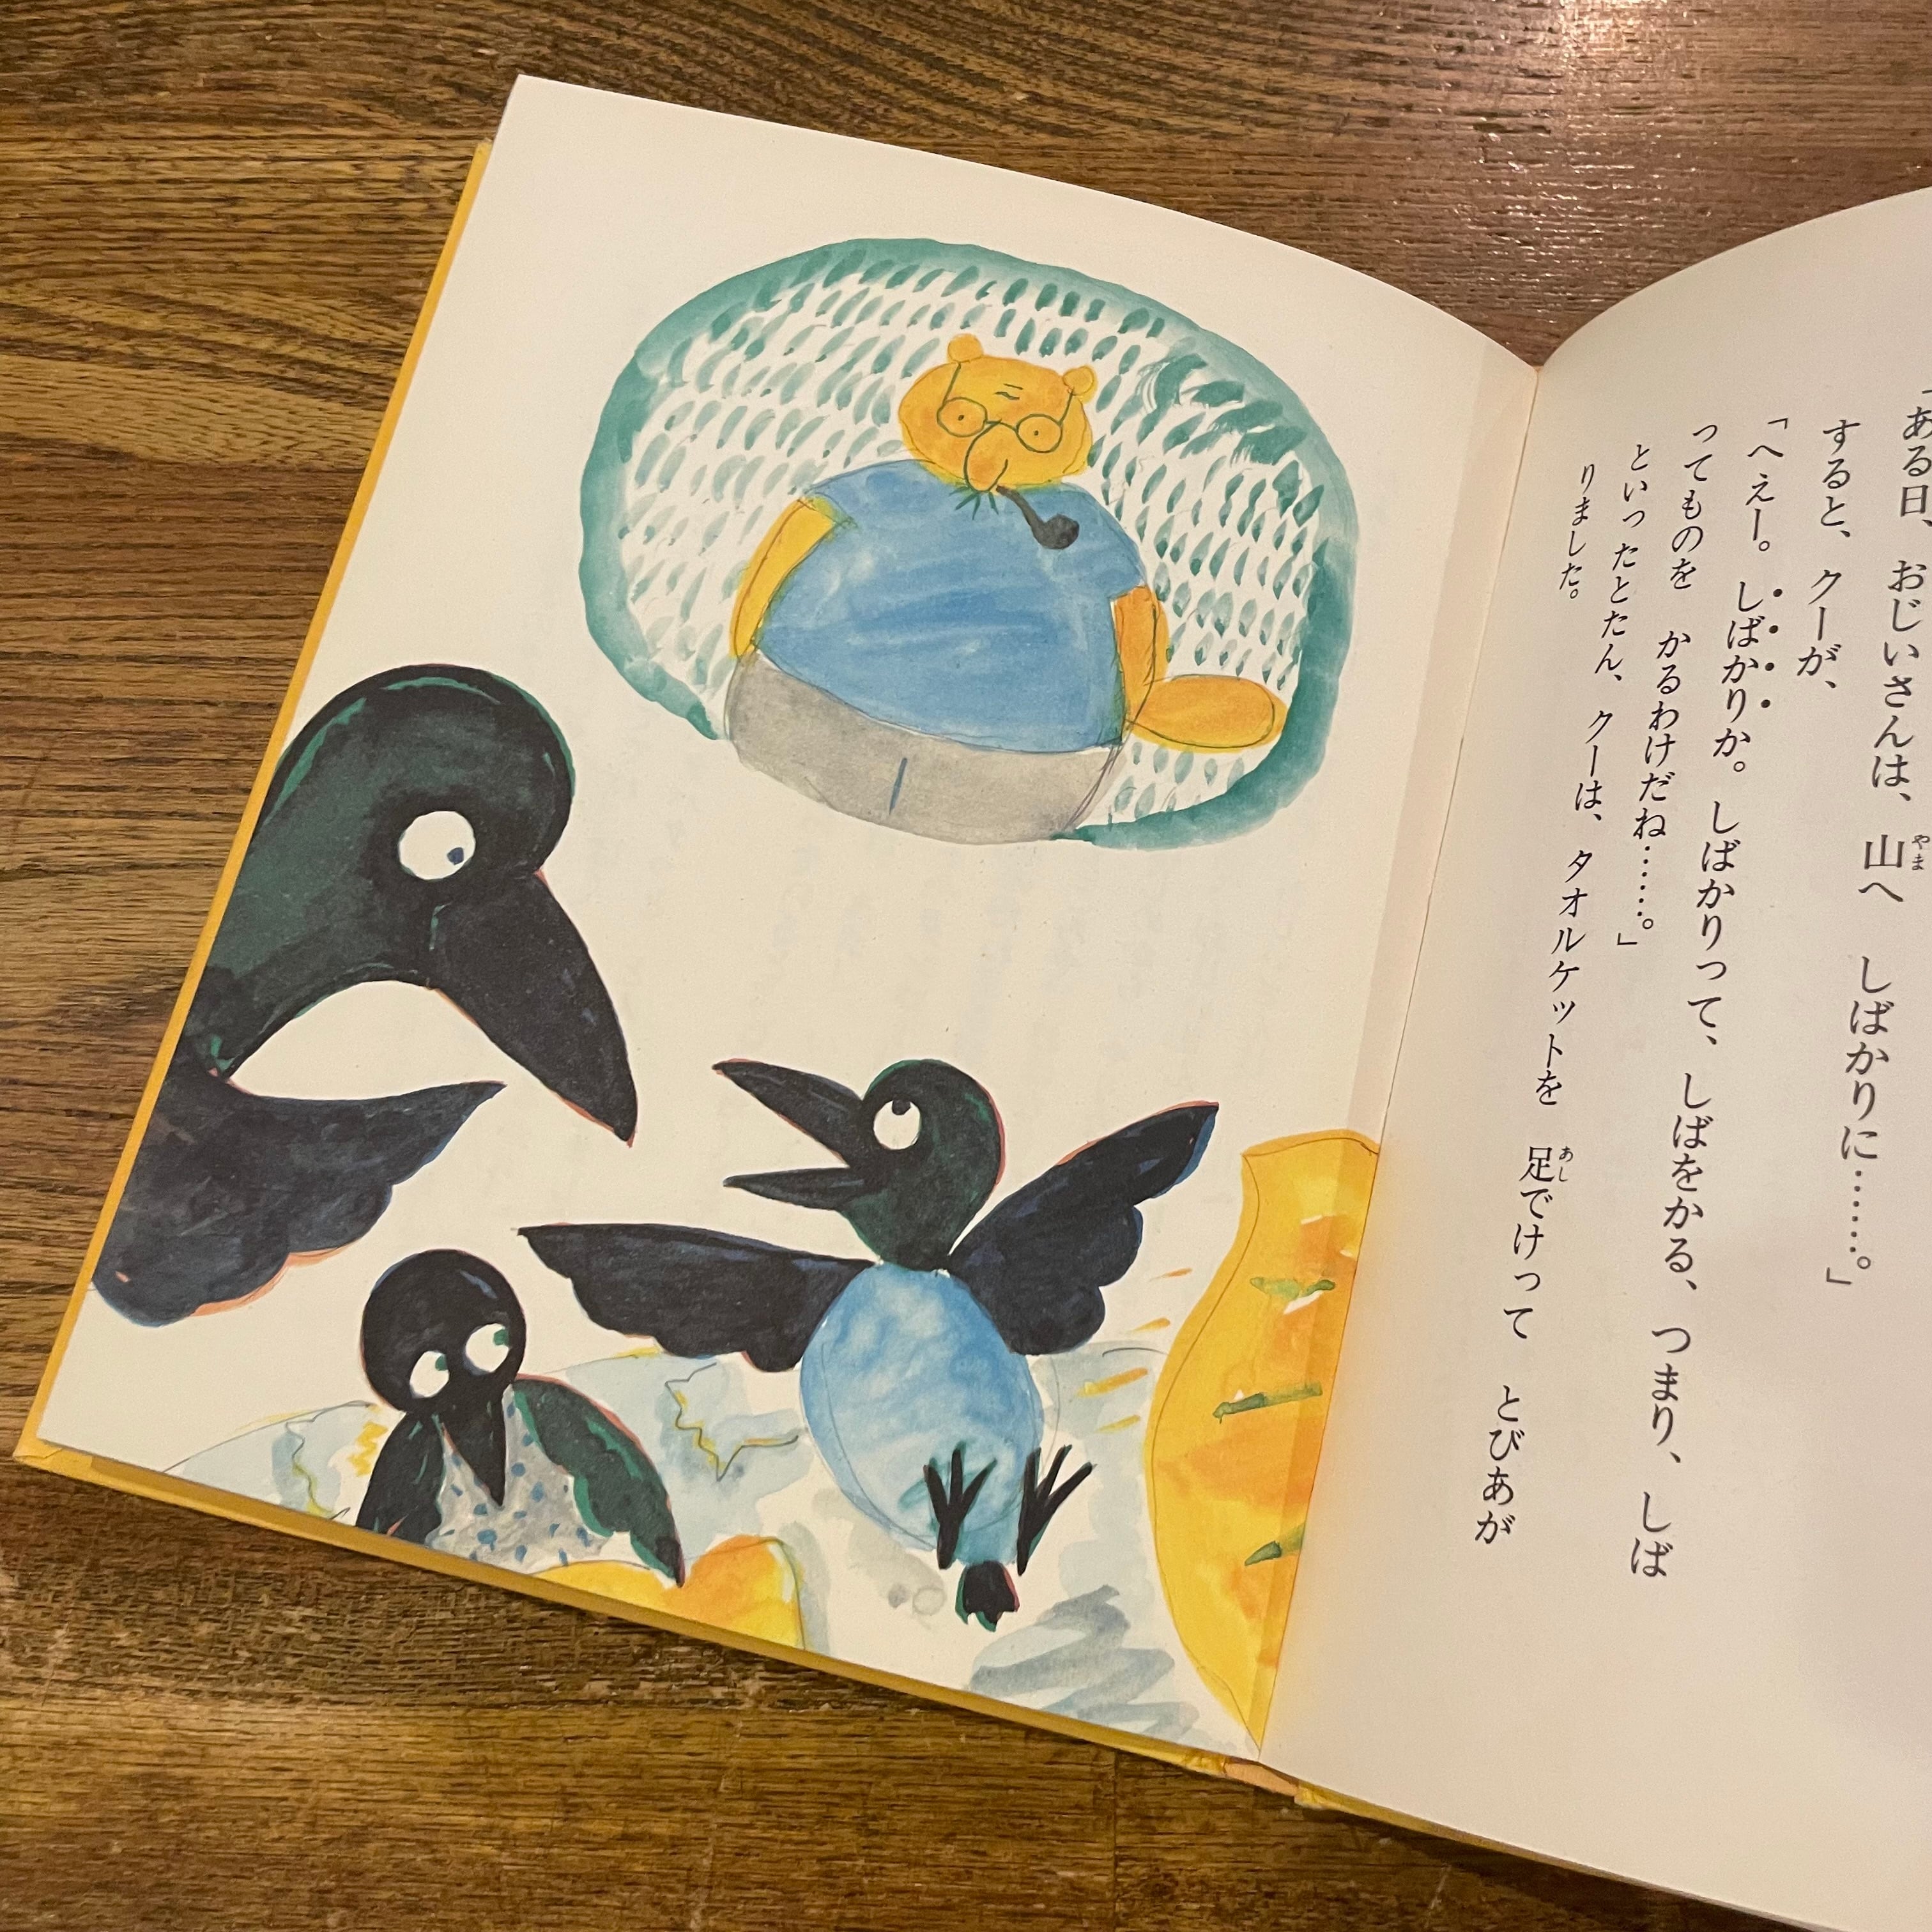 「ある日、おじいさんは、山へ しばかりに……。」
すると、クーが、
「へえー。しばかりか。しばかりって、しばをかる、つまり、しば
ってものを かるわけだね……。」
といったとたん、クーは、タオルケットを 足でけって とびあが
りました。
やま
あし